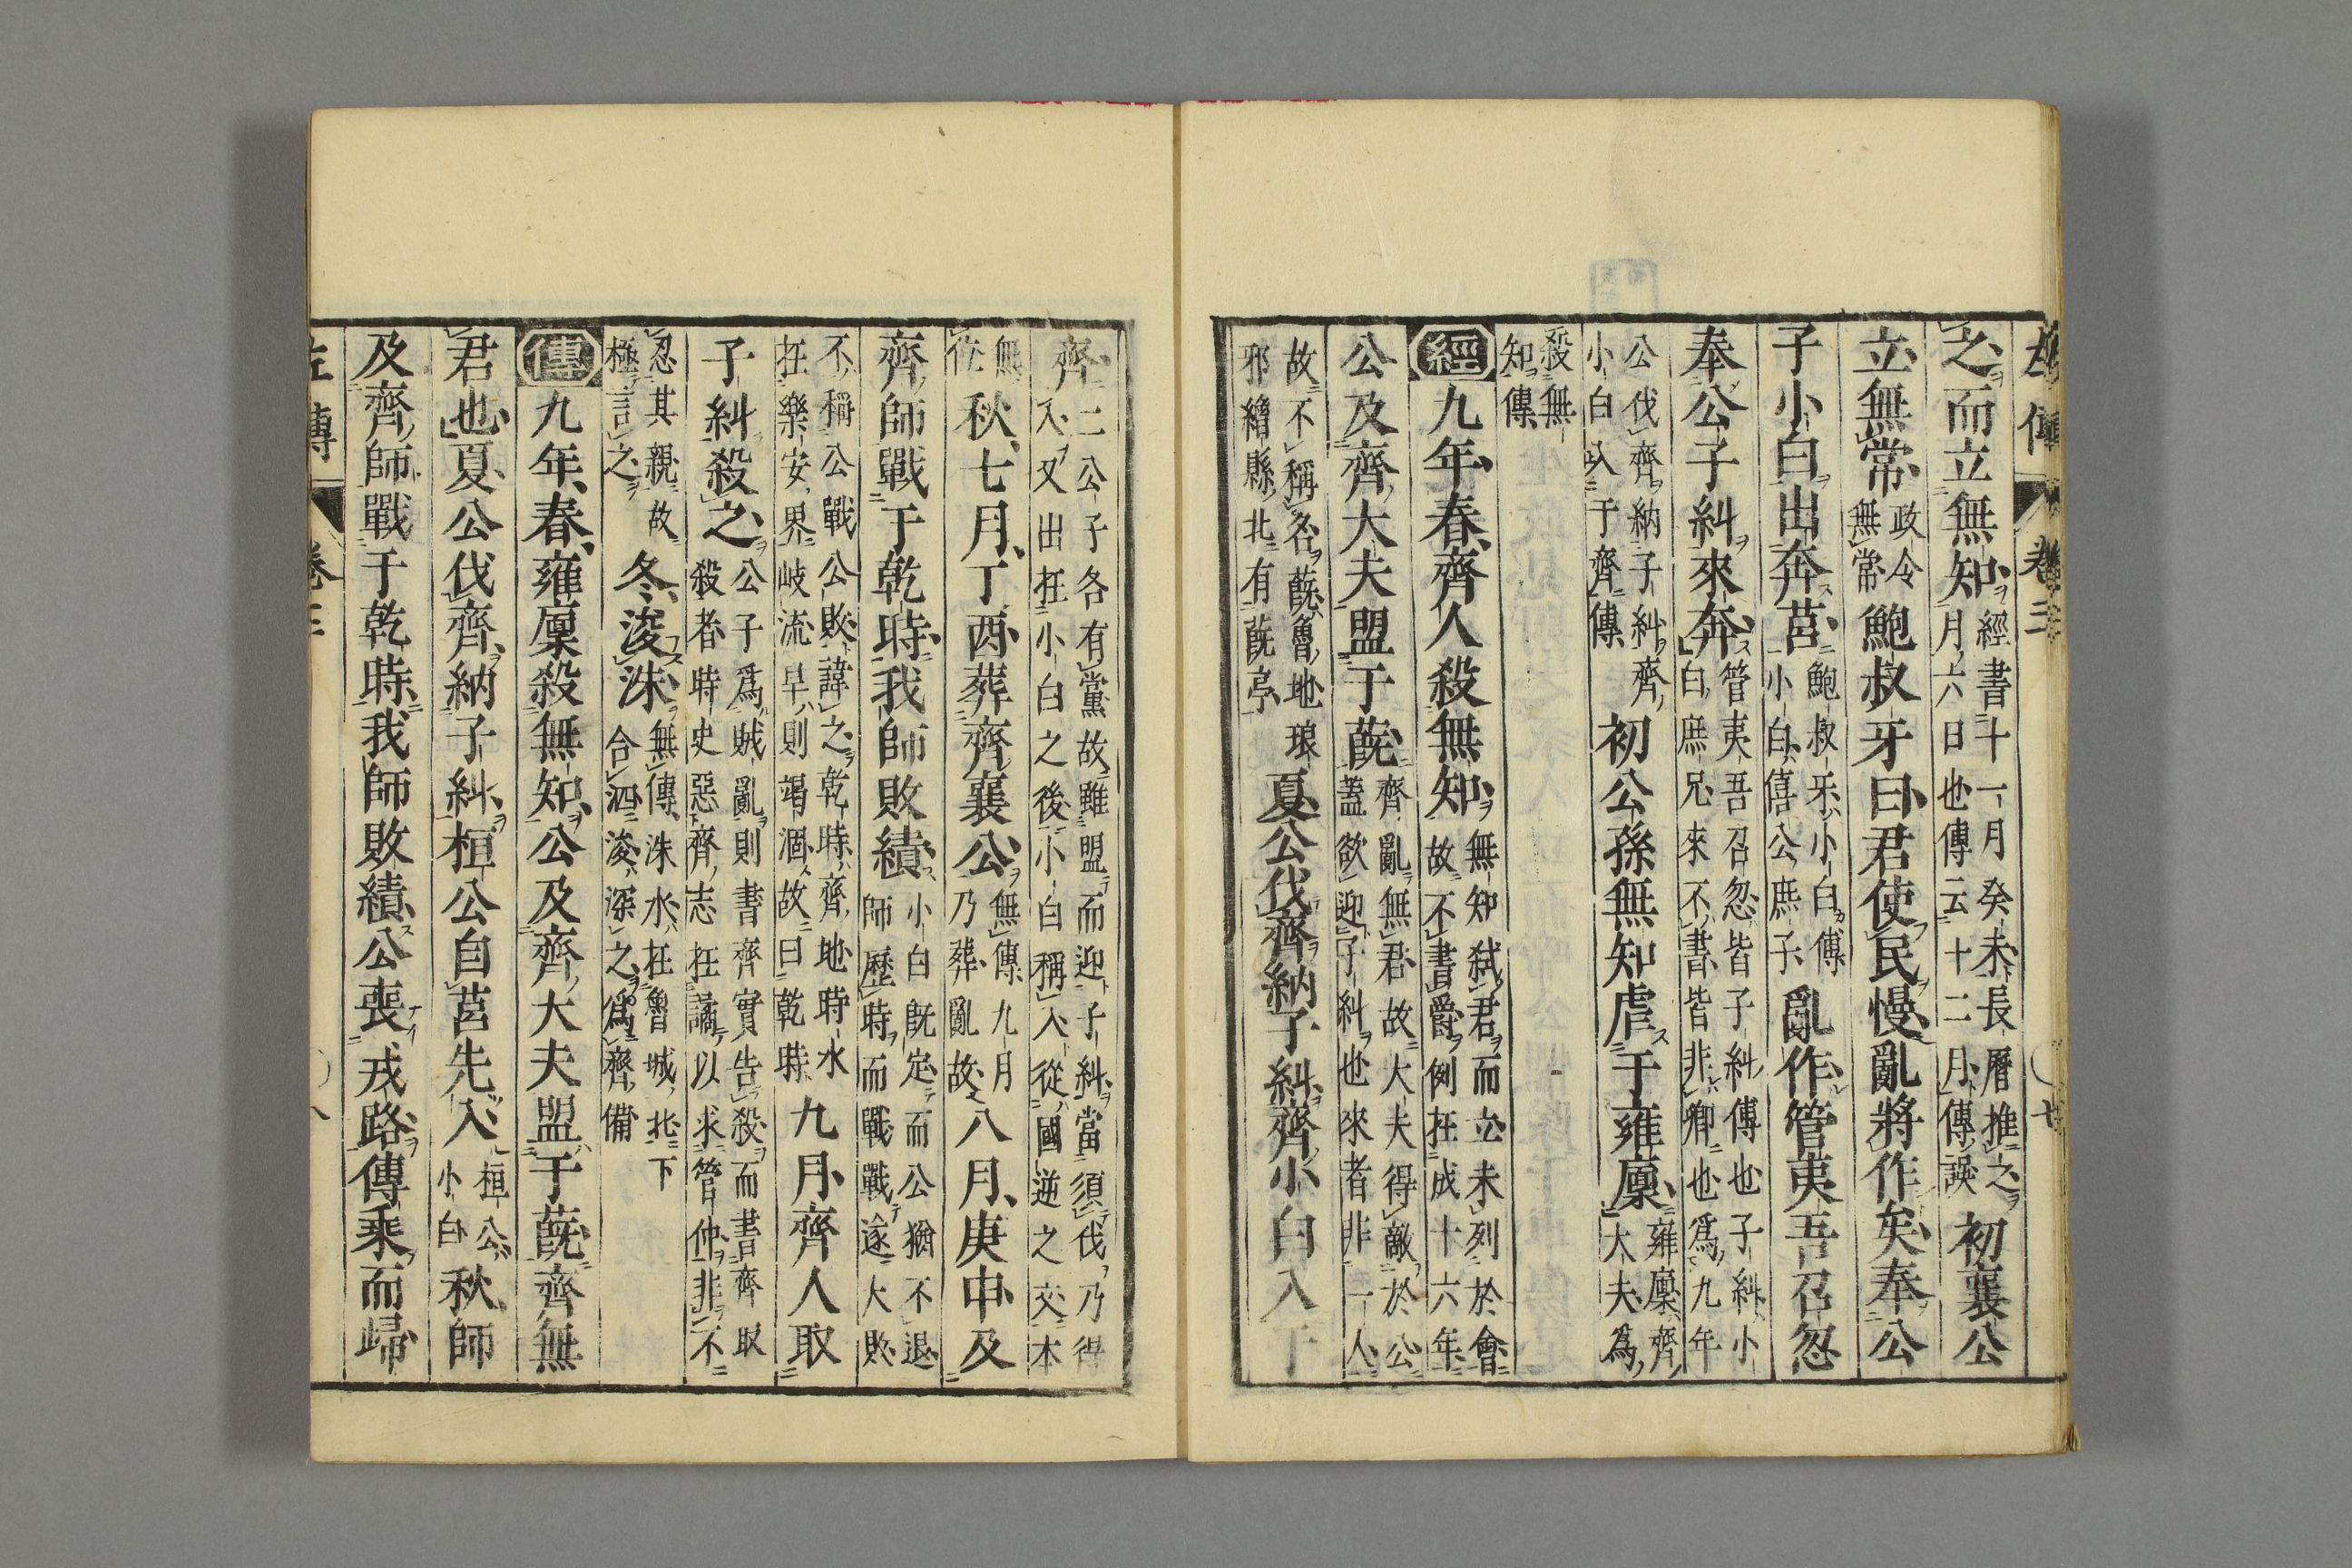 左傳 卷三
之而立無知經書十一月癸未長曆推之月六日也傳云十二月傳誤初襄公
立無常政令無常鮑叔牙曰君使民慢亂將作矣奉公
子小白出奔莒鮑叔牙小白傅小白僖公庶子亂作管夷吾召忽
奉公子糾來奔管夷吾召忽皆子糾傅也子糾小白庶兄來不書皆非卿也爲九年
公伐齊納子糾齊小白入于齊傳初公孫無知虐于雍廩雍廩齊大夫爲
殺無知傳
經九年春齊人殺無知無知弒君而立未列於會故不書爵例在成十六年
公及齊大夫盟于蔇齊亂無君故大夫得敵於公蓋欲迎子糾也來者非一人
故不稱名蔇魯地琅邪繒縣北有蔇亭夏公伐齊納子糾齊小白入于
齊二公子各有黨故雖盟而迎子糾當須伐乃得入又出在小白之後小白稱入從國逆之文本
無位秋七月丁酉葬齊襄公無傳九月乃葬亂故八月庚申及
齊師戰于乾時我師敗績小白既定而公猶不退師歷時而戰戰遂大敗
不稱公戰公敗諱之乾時齊地時水在樂安界岐流旱則竭涸故曰乾時九月齊人取
子糾殺之公子爲賊亂則書齊實告殺而書齊取殺者時史惡齊志在譎以求管仲非不
忍其親故極言之冬浚洙無傳洙水在魯城北下合泗浚深之爲齊備
傳九年春雍廩殺無知公及齊大夫盟于蔇齊無
君也夏公伐齊納子糾桓公自莒先入桓公小白秋師
及齊師戰于乾時我師敗績公喪戎路傳乘而歸
左傳 卷三 八